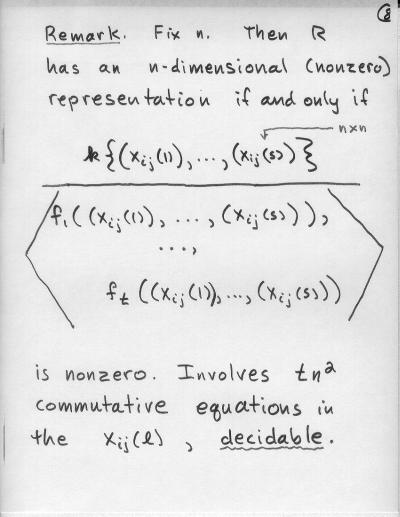 8
Remark. Fix n. Then R
has an n-dimensional (nonzero)
representation if and only if
n×n
k{(x_ij(1)), ..., (x_ij(s))}
f_1((x_ij(1)), ..., (x_ij(s))),
...,
f_t((x_ij(1)), ..., (x_ij(s)))
is nonzero. Involves tn²
commutative equations in
the x_ij(l), decidable.